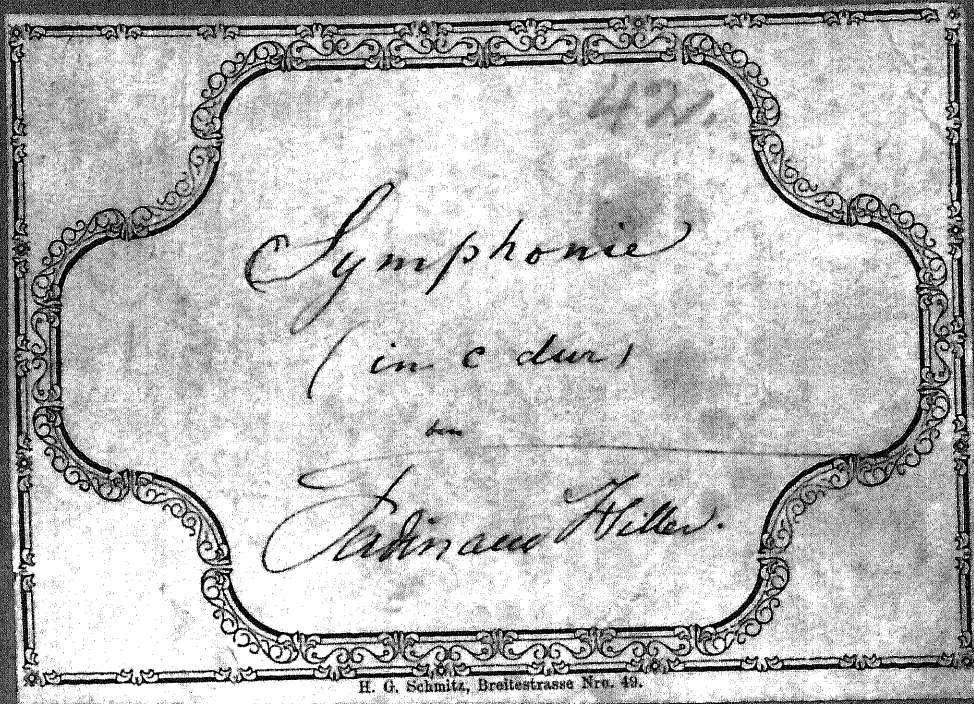 421.
Symphonie
(in c dur)
von
Ferdinand Hiller.
H. G. Schmitz, Breitestrasse Nro. 49.